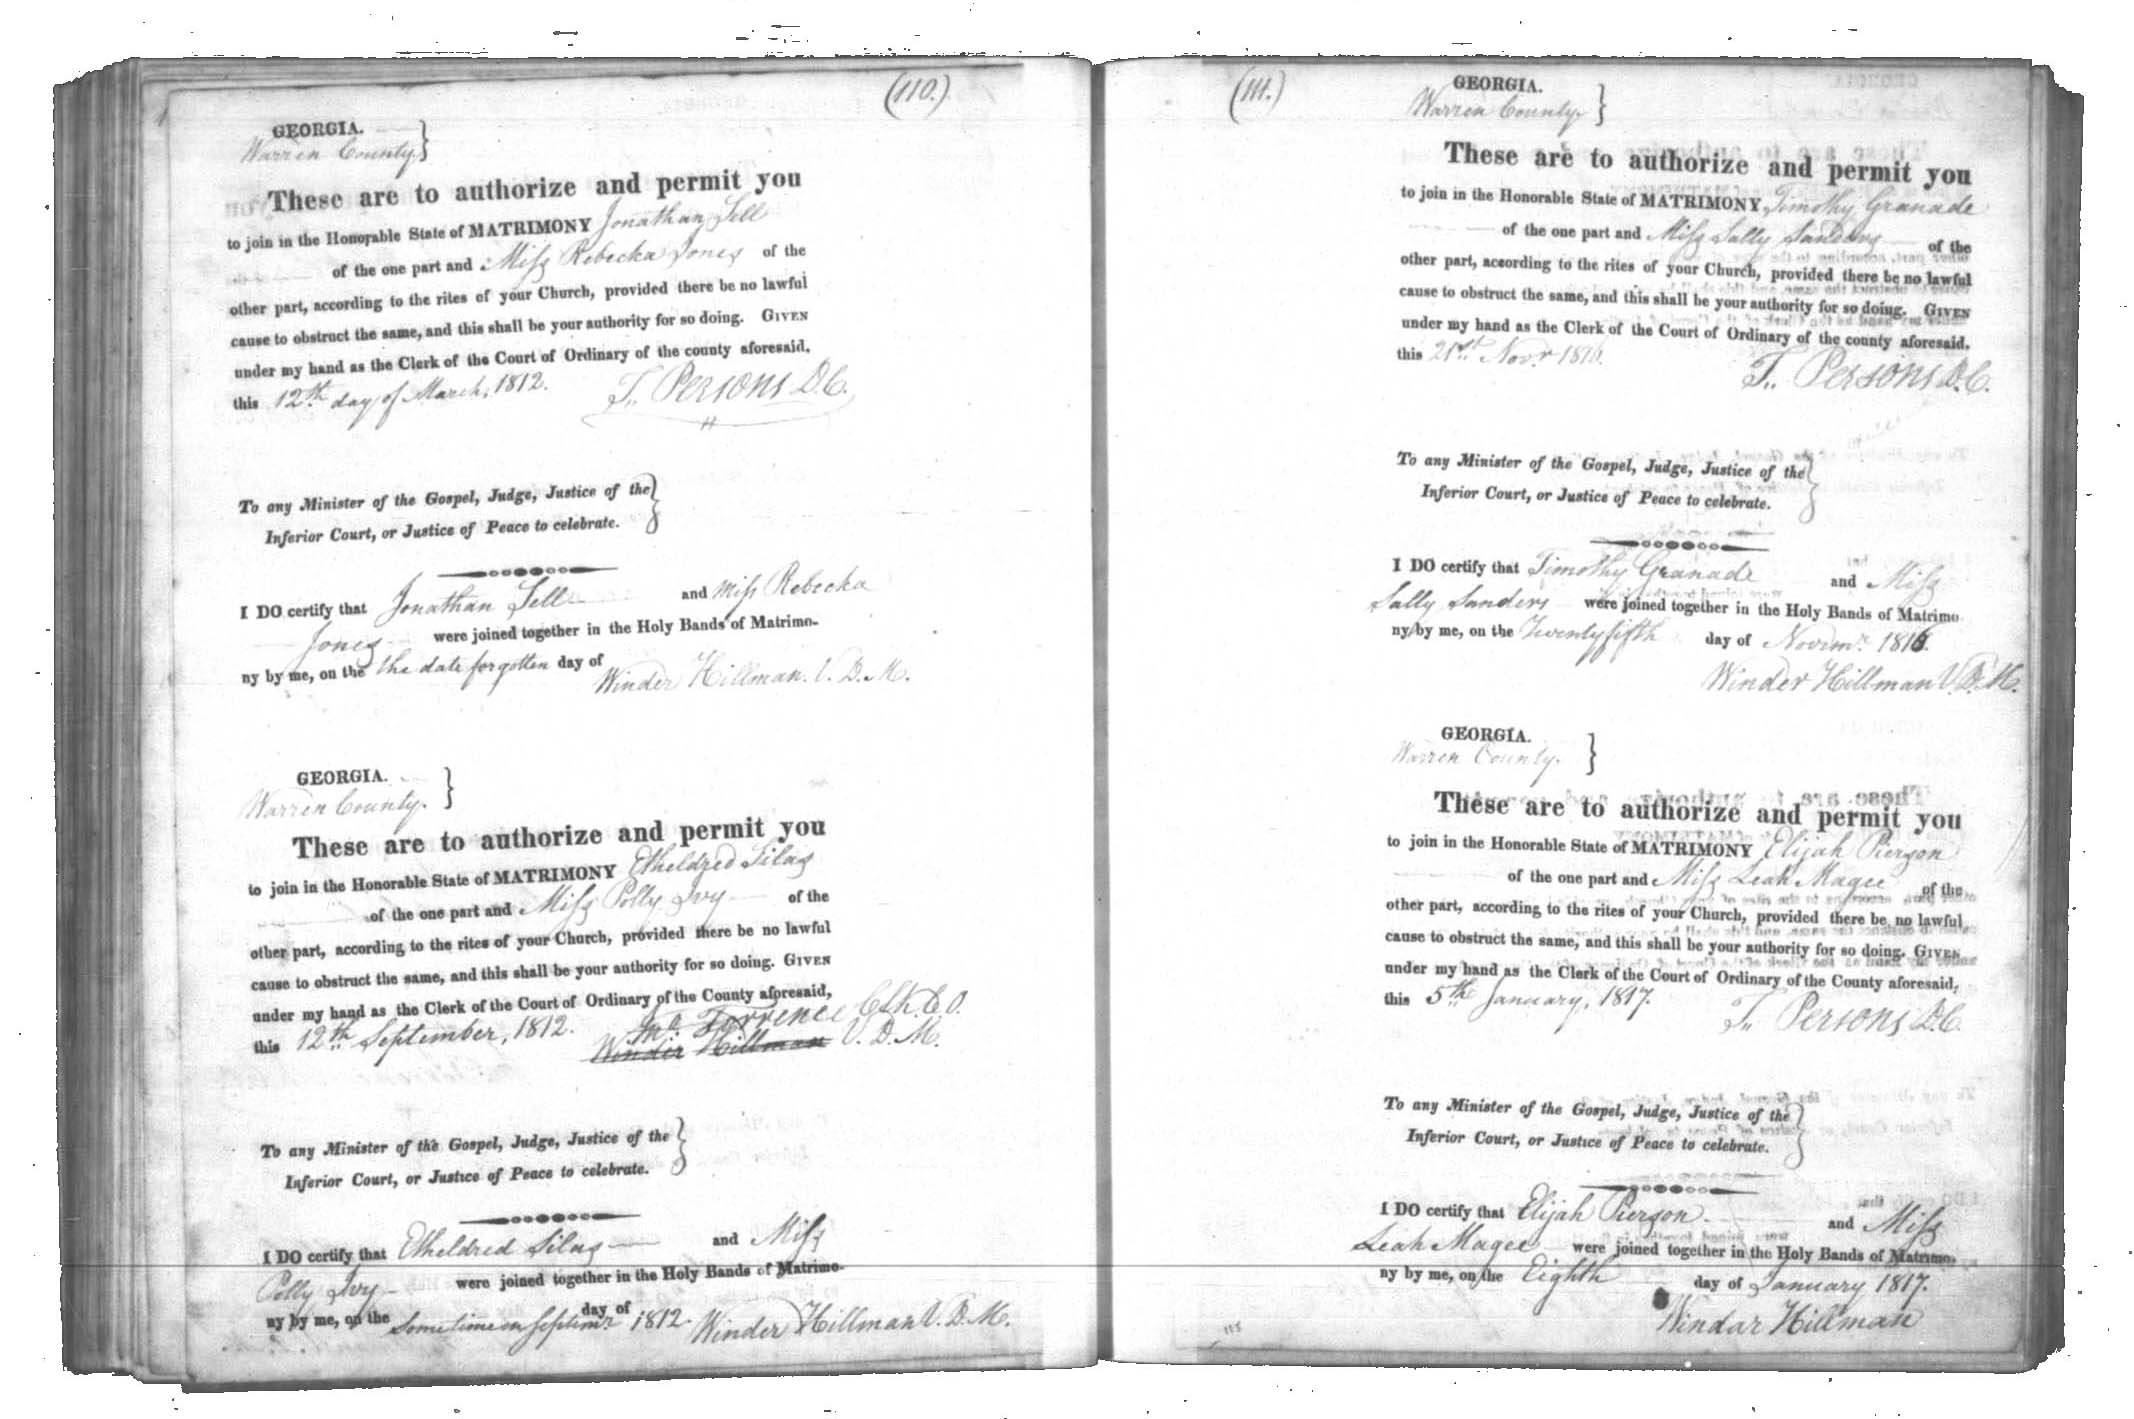 (110.)
GEORGIA.
Warren County. }
These are to authorize and permit you
to join in the Honorable State of MATRIMONY Jonathan Sell
of the one part and Miss Rebecka Jones of the
other part, according to the rites of your Church, provided there be no lawful
cause to obstruct the same, and this shall be your authority for so doing. GIVEN
under my hand as the Clerk of the Court of Ordinary of the county aforesaid,
this 12th day of March, 1812. T. Persons D.C.
To any Minister of the Gospel, Judge, Justice of the }
Inferior Court, or Justice of Peace to celebrate.
I DO certify that Jonathan Sell and Miss Rebecka
Jones were joined together in the Holy Bands of Matrimo-
ny by me, on the the date forgotten day of
Winder Hillman. V. D. M.
GEORGIA.
Warren County. }
These are to authorize and permit you
to join in the Honorable State of MATRIMONY Etheldred Silas
of the one part and Miss Polly Ivy of the
other part, according to the rites of your Church, provided there be no lawful
cause to obstruct the same, and this shall be your authority for so doing. GIVEN
under my hand as the Clerk of the Court of Ordinary of the County aforesaid,
this 12th September, 1812. Jno. Torrence Clk. C. O.
Winder Hillman V. D. M.
To any Minister of the Gospel, Judge, Justice of the }
Inferior Court, or Justice of Peace to celebrate.
I DO certify that Etheldred Silas and Miss
Polly Ivy were joined together in the Holy Bands of Matrimo-
ny by me, on the Sometime in Septimr. day of 1812. Winder Hillman V. D. M.
(111.)
GEORGIA.
Warren County. }
These are to authorize and permit you
to join in the Honorable State of MATRIMONY Timothy Granade
of the one part and Miss Sally Sanders of the
other part, according to the rites of your Church, provided there be no lawful
cause to obstruct the same, and this shall be your authority for so doing. GIVEN
under my hand as the Clerk of the Court of Ordinary of the county aforesaid,
this 21st Novr. 1816. T. Persons D.C.
To any Minister of the Gospel, Judge, Justice of the }
Inferior Court, or Justice of Peace to celebrate.
I DO certify that Timothy Granade and Miss
Sally Sanders were joined together in the Holy Bands of Matrimo
ny by me, on the Twenty fifth day of Novimr. 1816.
Winder Hillman V. D. M.
GEORGIA.
Warren County. }
These are to authorize and permit you
to join in the Honorable State of MATRIMONY Elijah Pierson
of the one part and Miss Leah Magee of the
other part, according to the rites of your Church, provided there be no lawful
cause to obstruct the same, and this shall be your authority for so doing. GIVEN
under my hand as the Clerk of the Court of Ordinary of the County aforesaid,
this 5th January, 1817. T. Persons D.C.
To any Minister of the Gospel, Judge, Justice of the }
Inferior Court, or Justice of Peace to celebrate.
I DO certify that Elijah Pierson and Miss
Leah Magee were joined together in the Holy Bands of Matrimo-
ny by me, on the Eighth day of January 1817.
Windar Hillman